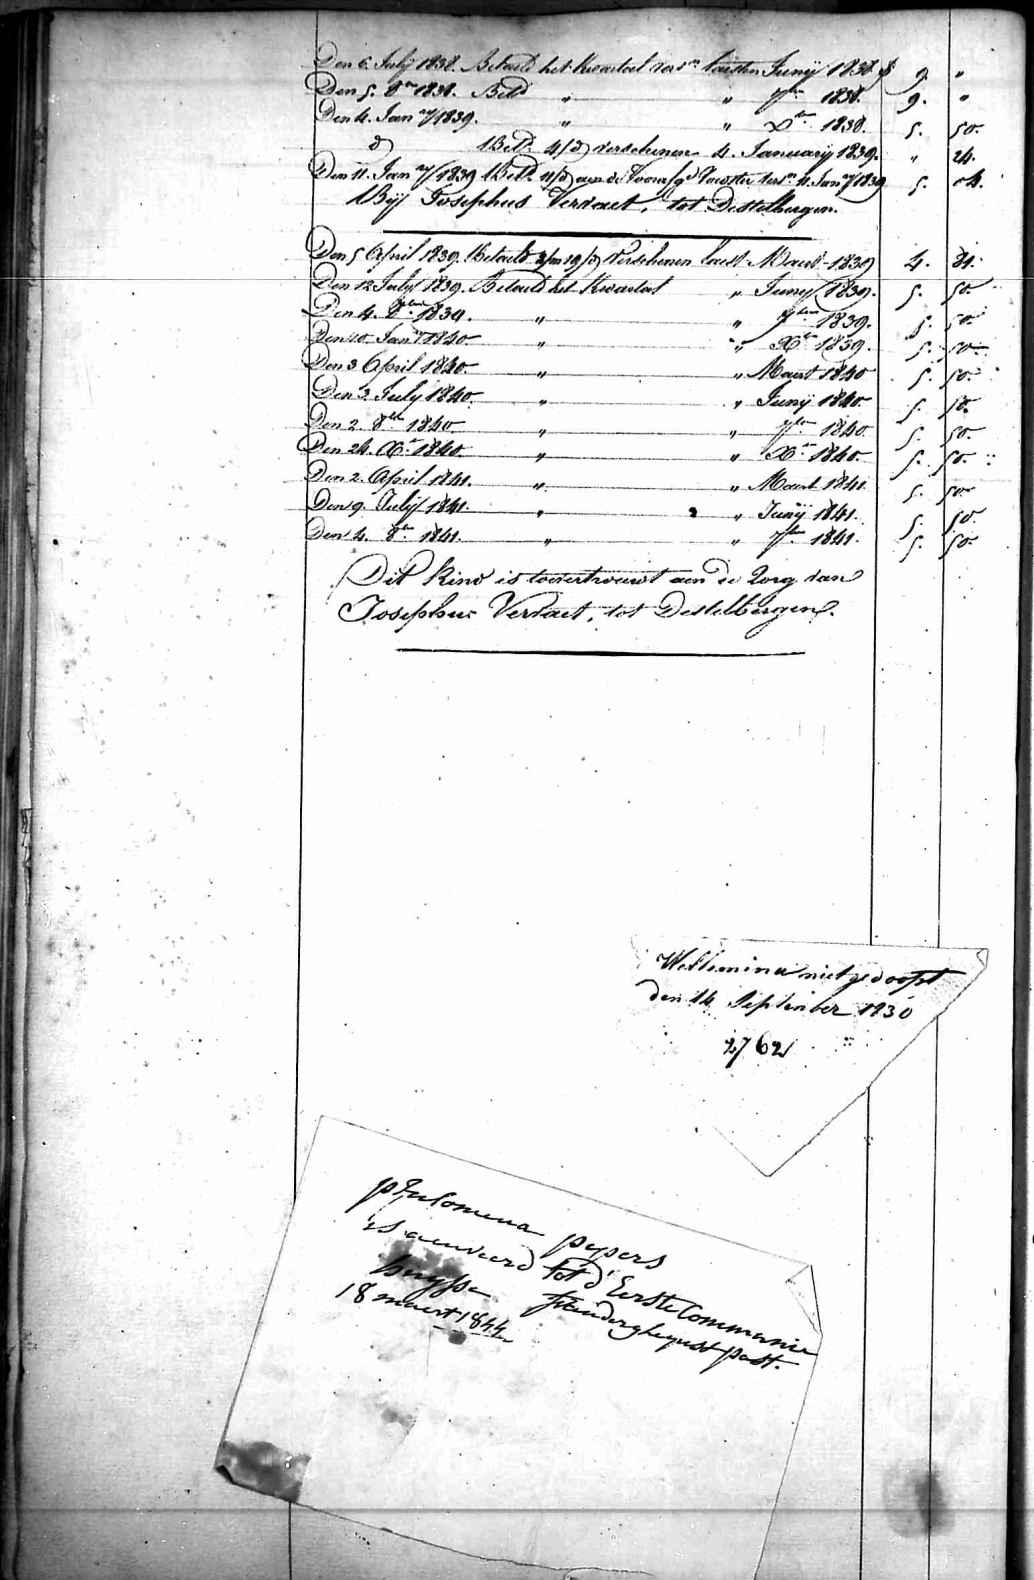 Den 6. Julij 1838. Betaald het kwartael vers.n laesten Junij 1838 f 9. "
Den 5. 8bre 1838. Betd " " 7bre 1838. 9. "
Den 4. Jan.ry 1839. " " Xbre 1838. 5. 50.
d.o Betd. 4/d verschenen 4. January 1839. " 24.
Den 11. Jan.ry 1839 Betd. 11/d aen de Voorsz. vers.n 11. Jan.ry 1839 5.
Bij Josephus Vervaet, tot Destelbergen.
Den 5 April 1839. Betaeld verschenen laest Maert 1839 4. 84.
Den 12 July 1839. Betaeld het Kwartael " Juny 1839. 5. 50.
Den 4. 8bre 1839. " " 7bre 1839. 5. 50.
Den 10. Jan.ry 1840 " " Xbre 1839. 5. 50.
Den 3 April 1840. " " Maert 1840 5. 50.
Den 3. July 1840. " " Junij 1840. 5. 50.
Den 2. 8bre 1840. " " 7bre 1840. 5. 50.
Den 24. Xbre 1840. " " Xbre 1840. 5. 50.
Den 2. April 1841. " " Maert 1841. 5. 50.
Den 9. July 1841. " " Junij 1841. 5. 50.
Den 4. 8bre 1841. " " 7bre 1841. 5. 50.
Dit kind is toevertrouwt aen de zorg van
Josephus Vervaet, tot Destelbergen.
Wellemina niet gedoopt
den 14 September 1830
2762
philomena pypers
is aenveerd tot d'Eerste Communie
huysse past.
18 maert 1844